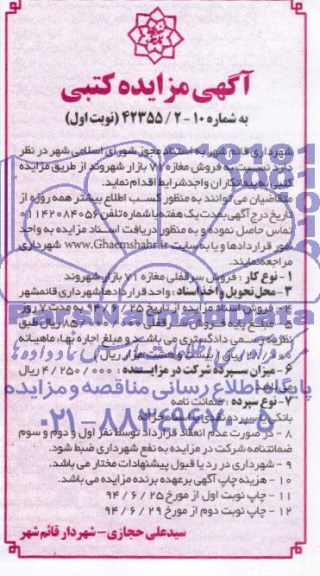 آگهی مزایده کتبی
به شماره ۱۰-۴۲۳۵۵/۲ (نوبت اول)
شهرداری قائم شهر به استناد مجوز شورای اسلامی شهر در نظر
دارد نسبت به فروش مغازه ۷۱ بازار شهروند از طریق مزایده
کتبی به پیمانکاران واجد شرایط اقدام نماید.
متقاضیان می توانند به منظور کسب اطلاع بیشتر همه روزه از
تاریخ درج آگهی بمدت یک هفته با شماره تلفن ۰۱۱۴۲۰۸۴۰۵۶
تماس حاصل نموده و به منظور دریافت اسناد مزایده به واحد
امور قراردادها و یا به سایت www.Ghaemshahr.ir شهرداری
مراجعه نمایند.
۱ - نوع کار : فروش سرقفلی مغازه ۷۱ بازار شهروند
۳ - محل تحویل و اخذ اسناد : واحد قراردادها شهرداری قائمشهر
۴ - فروش اسناد مزایده از تاریخ ۹۴/۶/۲۵ به مدت ۷ روز
۵ - مبلغ پایه فروش سرقفلی ریال طبق
نظریه رسمی دادگستری می باشد و مبلغ اجاره بها، ماهیانه
ریال (بیست و هشت هزار ریال)
۶ - میزان سپرده شرکت در مزایده : ۴/۲۵۰/۰۰۰ ریال
می باشد.
پایگاه اطلاع رسانی مناقصه و مزایده
۷ - نوع سپرده : ضمانت نامه
بانکی سپرده نقدی
۰۲۱-۸۸۳۴۹۶۷۰-۵
۸ - در صورت عدم انعقاد قرارداد توسط نفر اول و دوم و سوم
ضمانتنامه شرکت در مزایده به نفع شهرداری ضبط شود.
۹ - شهرداری در رد یا قبول پیشنهادات مختار می باشد.
۱۰ - هزینه چاپ آگهی برعهده برنده مزایده می باشد.
۱۱ - چاپ نوبت اول از مورخ ۹۴/۶/۲۵
۱۲ - چاپ نوبت دوم از مورخ ۹۴/۶/۲۹
سید علی حجازی - شهردار قائم شهر